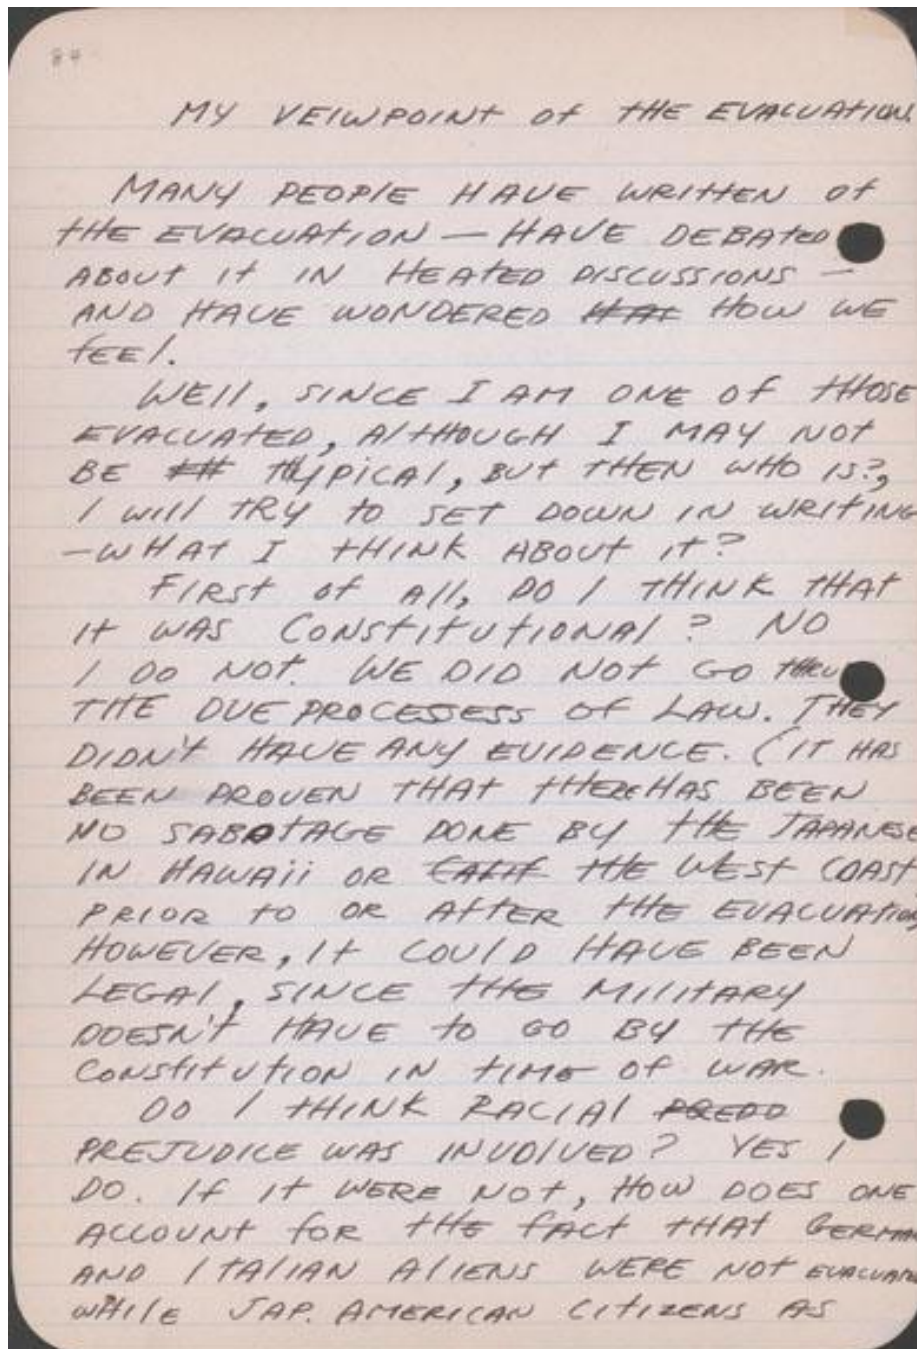 84
MY VEIWPOINT of THE EVACUATION.
MANY PEOPLE HAVE WRITTEN of
THE EVACUATION — HAVE DEBATED
ABOUT IT IN HEATED DISCUSSIONS —
AND HAVE WONDERED HOW WE
fEEl.
WEll, SINCE I AM ONE OF THOSE
EVACUATED, AlTHOUGH I MAY NOT
BE TYPICAl, BUT THEN WHO IS?,
I WIll TRY TO SET DOWN IN WRITING
—WHAT I THINK ABOUT IT?
FIRST OF All, DO I THINK THAT
IT WAS CONSTITUTIONAl? NO
I DO NOT. WE DID NOT GO THRU
THE DUE PROCESSESS OF LAW. THEY
DIDN'T HAVE ANY EVIDENCE. (IT HAS
BEEN PROVEN THAT THERE HAS BEEN
NO SABOTAGE DONE BY THE JAPANESE
IN HAWAii OR CALIF THE WEST COAST
PRIOR TO OR AFTER THE EVACUATION
HOWEVER, IT COULD HAVE BEEN
LEGAl, SINCE THE MIlITARY
DOESN'T HAVE TO GO BY THE
CONSTITUTION IN TIME OF WAR.
DO I THINK RACIAl PREDD
PREJUDICE WAS INVOlVED? YES I
DO. If IT WERE NOT, HOW DOES ONE
ACCOUNT foR THE fACT THAT GERMAN
AND ITALIAN AlIENS WERE NOT EVACUATED
WHIlE JAP. AMERICAN CITIZENS AS